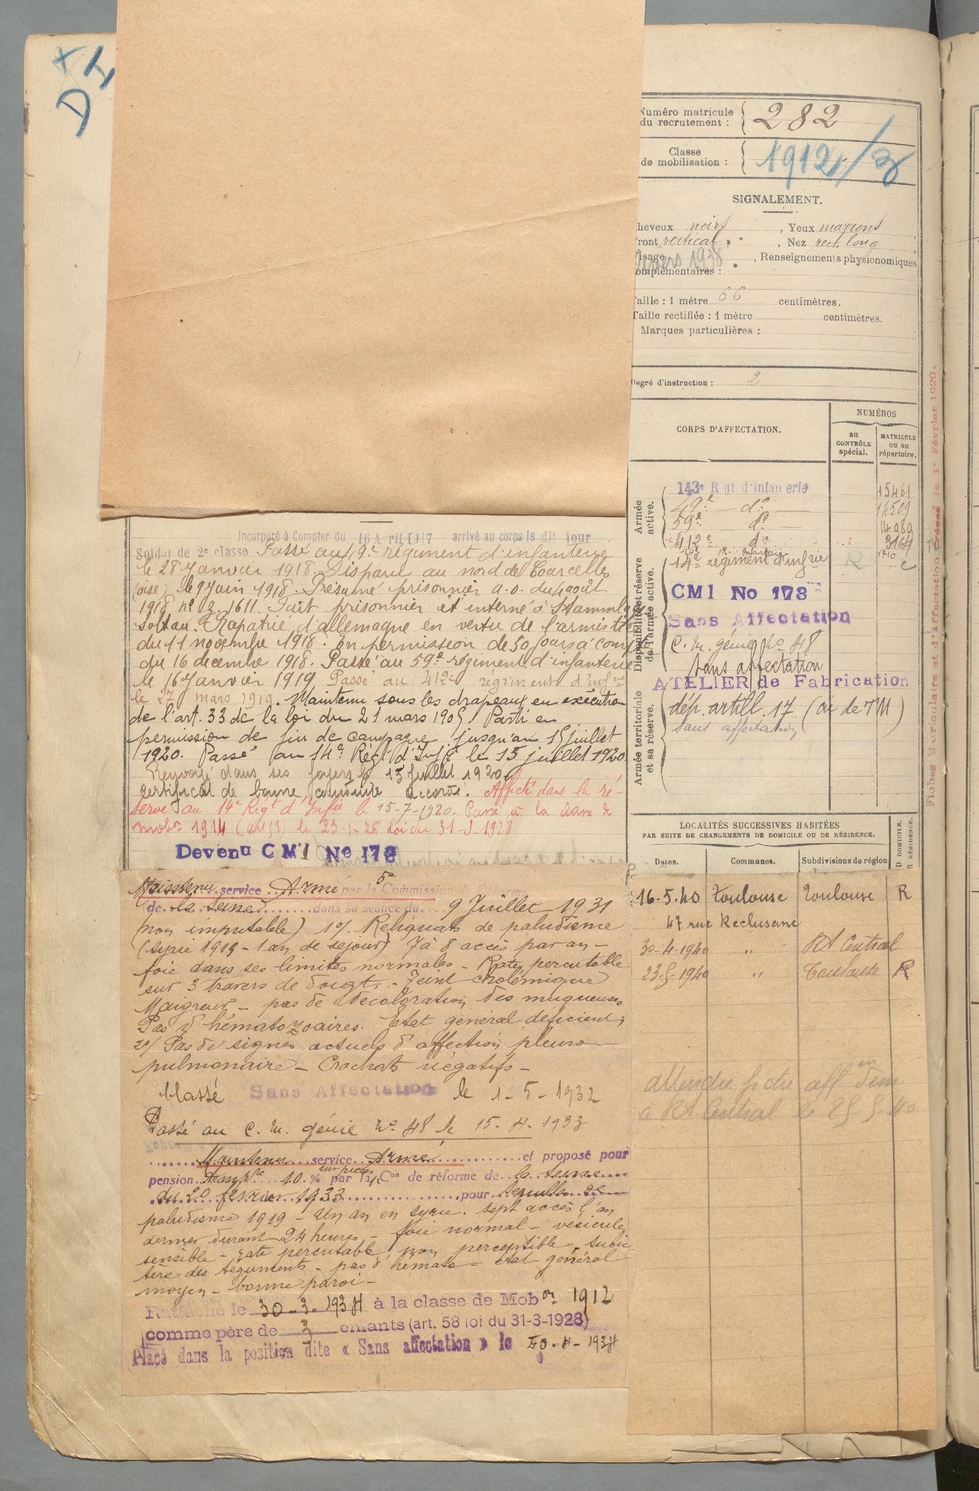 DI
Numéro matricule
du recrutement : 282
Classe
de mobilisation : 1912/3
SIGNALEMENT.
heveux noirs, Yeux marrons
ront vertical, Nez rect. long
isage, Renseignements physionomiques
omplémentaires :
aille : 1 mètre 66 centimètres.
Taille rectifiée : 1 mètre centimètres.
Marques particulières :
Degré d'instruction : 2
CORPS D'AFFECTATION.
NUMÉROS
au CONTRÔLE spécial.
MATRICULE OU AU répertoire.
Armée active.
143e Rgt d'infanterie 15461
49e do
59e do
412e do
Disponibilité et réserve de l'armée active.
14e régiment d'infrie
CM1 No 178
Sans Affectation
C. M. génie No 48
sans affectation
ATELIER de Fabrication
Armée territoriale et sa réserve.
dép. artill. 17 (ou de TM)
sans affectation
LOCALITÉS SUCCESSIVES HABITÉES
PAR SUITE DE CHANGEMENTS DE DOMICILE OU DE RÉSIDENCE.
Dates. Communes. Subdivisions de région D DOMICILE. R RÉSIDENCE.
16.5.40 Toulouse Toulouse R
47 rue Reclusane
30.4.1940 " RA Central
23.5.1940 " Toulouse R
attendre fiche aff
à RA Central le
Incorporé à Compter du 16 Avril 1917 arrivé au corps le dit jour
Soldat de 2e classe Passé au 49e régiment d'infanterie
le 28 Janvier 1918. Disparu au nord de Courcelles
(oise) le 9 Juin 1918. Présumé prisonnier a.o. du 4 août
1918 no 3.1611. Fait prisonnier et interné à Stammlager
Soltau. Rapatrié d'allemagne en vertu de l'armistice
du 11 novembre 1918. En permission de 30 jours à
du 16 décembre 1918. Passé au 59e régiment d'infanterie
le 16 Janvier 1919. Passé au 412e régiment d'infrie
le 27 mars 1919. Maintenu sous les drapeaux en exécution
de l'art. 33 de la loi du 21 mars 1905. Parti en
permission de fin de campagne jusqu'au 15 juillet
1920. Passé au 14e Régt d'Infie le 15 juillet 1920
Renvoyé dans ses foyers le 15 juillet 1920
certificat de bonne conduite accordé. Affecté dans la ré-
serve au 14e Régt d'Infie le 15-7-1920. Passé à la classe de
mobon 1914 le Loi du 31-3-1928
Devenu CM1 No 178
Maintenu service Armé par la 5e Commission
de la Seine dans sa séance du 9 Juillet 1931
(non imputable) 1o/ Reliquats de paludisme
(Syrie 1919 - 1 an de séjour) 7 à 8 accès par an -
foie dans ses limites normales - Rate percutable
sur 3 travers de doigt. - Teint cholémique
Maigreur - pas de décoloration des muqueuses
Pas d'hématozoaires. Etat général déficient;
2o/ Pas de signes actuels d'affection pleuro
pulmonaire - Crachats négatifs -
Classé Sans Affectation le 1-5-1932
Passé au C. M. génie No 48 le 15-4-1933
Maintenu service Armé et proposé pour
pension tempre 10 % par la Con de réforme de la Seine
du 20 février 1933 pour
paludisme 1919 - Un an en Syrie. Sept accès l'an
dernier durant 24 heures, - foie normal - vésicule
sensible - rate percutable, non perceptible, subic
tère des téguments - pas d'hémato - état général
moyen - bonne paroi -
Rattaché le 30-3-1934 à la classe de Mobon 1912
comme père de 3 enfants (art. 58 loi du 31-3-1928)
Placé dans la position dite « Sans affectation » le 1934
Fiches Matriculaire et d'Affectation le 1er Février 1920.